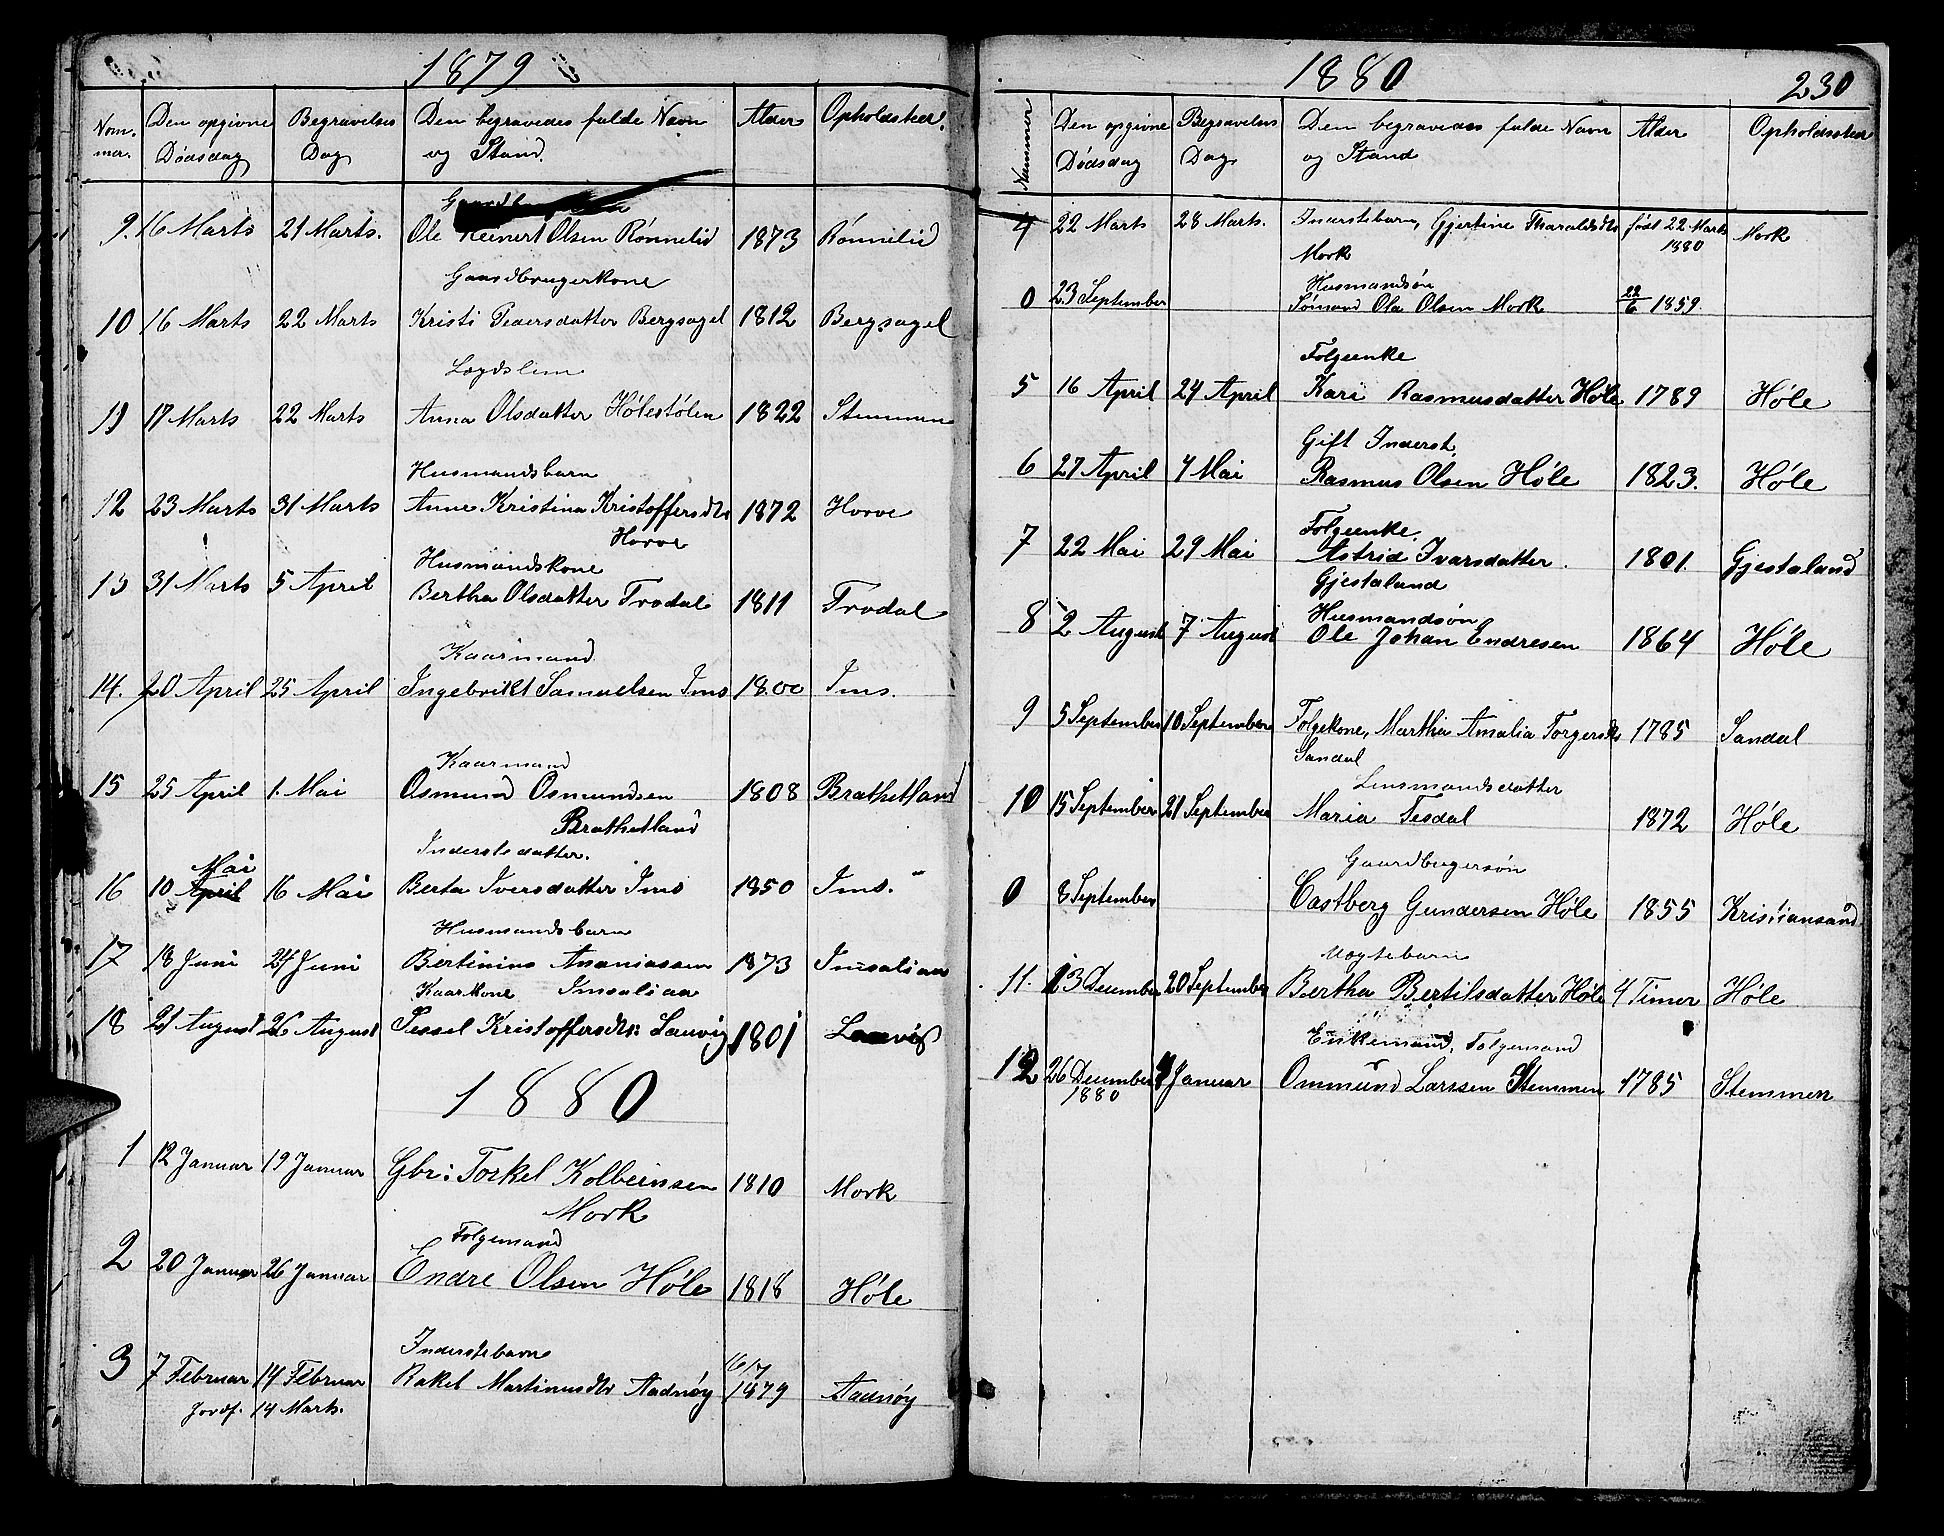 1879
Nom- Den opgivne Begravelses Den begravedes fulde Navn Alder Opholdssted.
mer. Dødsdag Dag og Stand.
9. 16 Marts 21 Marts. Ole Reinert Olsen Rønnelid 1873 Rønnelid
Gaardbrugerkone
10 16 Marts 22 Marts Kristi Pedersdatter Bergsagel 1812 Bergsagel
Lægdslem
11 17 Marts 22 Marts Anna Olsdatter Hølestølen 1822 Stemmen
Husmandsbarn
12 23 Marts 31 Marts Anne Kristina Kristoffersdtr 1872 Horve
Horve
Husmandskone
13 31 Marts 5 April Bertha Olsdatter Trodal 1811 Trodal
Kaarmand
14. 20 April 25 April Ingebrikt Samuelsen Ims 1800 Ims.
Kaarmand
15 25 April 1. Mai Osmund Osmundsen 1808 Brathetland
Brathetland
Inderstsdatter.
Mai
16 10 April 16 Mai Berta Iversdatter Ims 1850 Ims.
Husmandsbarn
17 18 Juni 24 Juni Bertinius Ananiassen 1873 Imsaliaa
Kaarkone Imsaliaa
18 21 August 26 August Sessel Kristoffersdtr: Lauvig 1801 Lauvig
1880
1 12 Januar 19 Januar Gbr: Torkel Kolbeinsen 1810 Mork
Mork
Folgemand
2 20 Januar 26 Januar Endre Olsen Høle 1818 Høle
Inderstebarn
3 7 Februar 14 Februar Rakel Martinusdtr Aadnøy 16/7 1879 Aadnøy
Jordf. 14 Marts.
1880
230
Nummer Den opgivne Begravelses Den begravedes fulde Navn Alder Opholdssted
Dødsdag Dag og Stand
4 22 Marts 28 Marts. Inderstebarn, Gjertine Tharaldsdtr født 22 Marts Mork
Mork 1880
Husmandsøn
0 23 September Sømand Ola Olsen Mork 22/6 1859.
Folgeenke
5 16 April 24 April Kari Rasmusdatter Høle 1789 Høle
Gift Inderst.
6 27 April 4 Mai Rasmus Olsen Høle 1823. Høle
Folgeenke.
7 22 Mai 29 Mai Astrid Ivarsdatter 1801. Gjestaland
Gjestaland
Husmandsøn
8 2 August 7 August Ole Johan Endresen 1864 Høle
9 5 September 10 September Folgekone, Martha Amalia Torgersdtr 1785 Sandal
Sandal
Lensmandsdatter
10 15 September 21 September Maria Tesdal 1872 Høle
Gaardbrugersøn
0 8 September Castberg Gundersen Høle 1855 Kristiansand
Uægtebarn
11. 13 December 20 September Bertha Bertilsdatter Høle 4 Timer Høle
Enkemand, Folgemand
12 26 December 4 Januar Ommund Larssen Stemmen 1785 Stemmen
1880